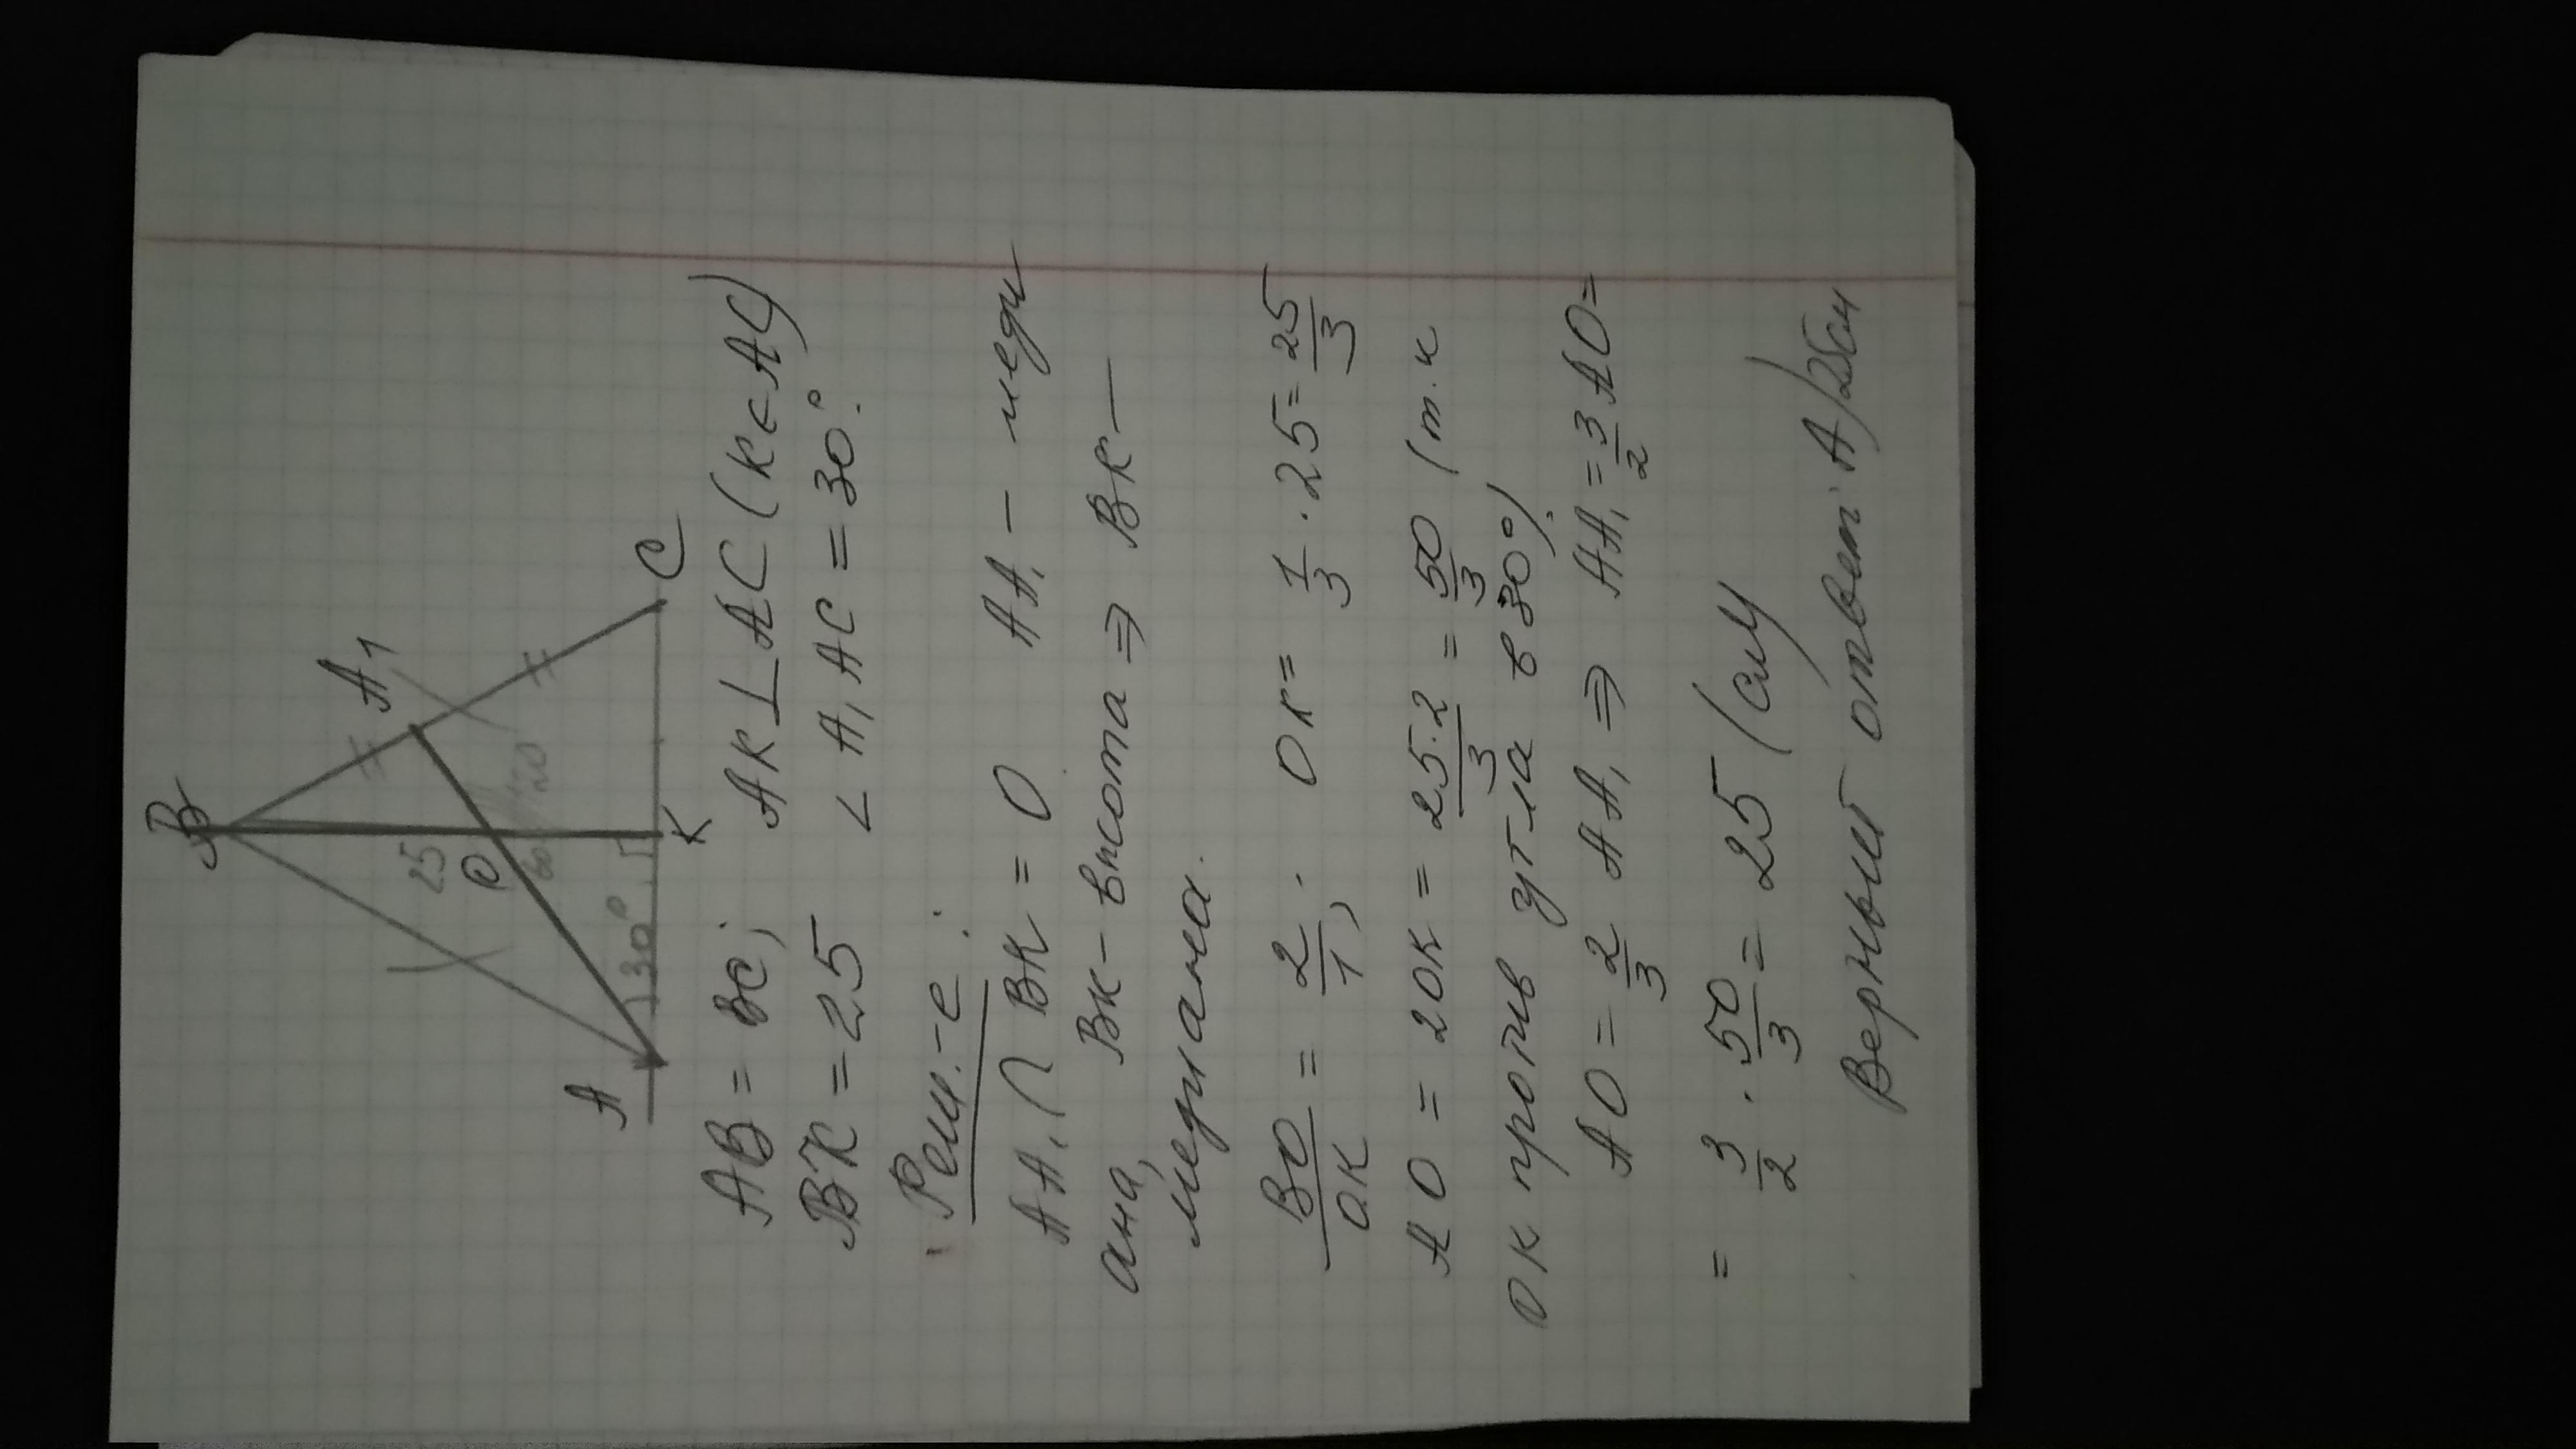 B
A1
25
O
60
120
30°
A
K
C
AB = BC; AK ⊥ AC (K ∈ AC)
BK = 25 ∠ A1AC = 30°.
Реш.-е:
AA1 ∩ BK = O AA1 – меди
ана, BK – высота ⇒ BK –
медиана.
BO/OK = 2/1; OK = 1/3 · 25 = 25/3
AO = 2OK = 25·2/3 = 50/3 (т.к
OK против угла в 30°).
AO = 2/3 AA1 ⇒ AA1 = 3/2 AO =
= 3/2 · 50/3 = 25 (см)
Верный ответ: A) 25см